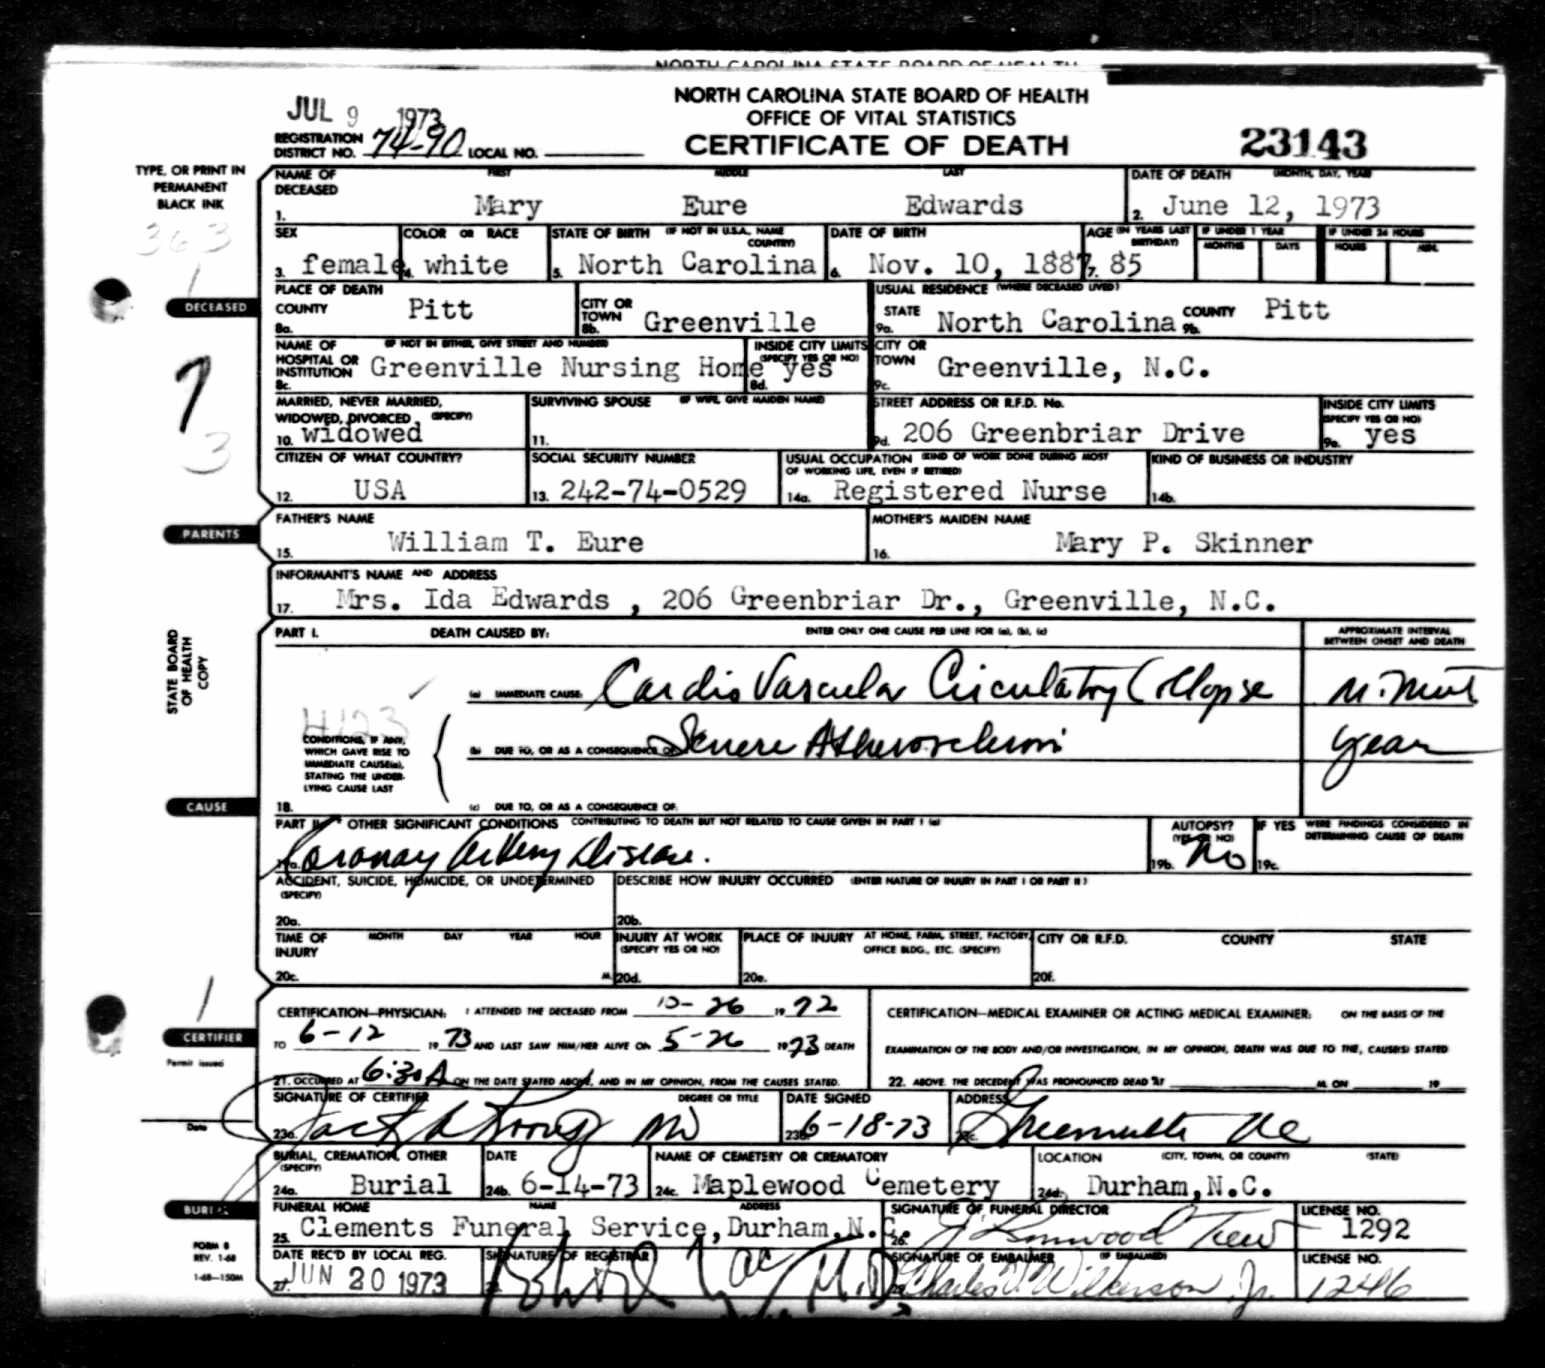 NORTH CAROLINA STATE BOARD OF HEALTH
NORTH CAROLINA STATE BOARD OF HEALTH
OFFICE OF VITAL STATISTICS
CERTIFICATE OF DEATH
23143
JUL 9 1973
REGISTRATION DISTRICT NO. 74-90 LOCAL NO.
TYPE, OR PRINT IN
PERMANENT
BLACK INK
363
1
NAME OF DECEASED FIRST MIDDLE LAST
1. Mary Eure Edwards
DATE OF DEATH (MONTH, DAY, YEAR)
2. June 12, 1973
SEX
3. female
COLOR OR RACE
4. white
STATE OF BIRTH (IF NOT IN U.S.A., NAME COUNTRY)
5. North Carolina
DATE OF BIRTH
6. Nov. 10, 1887
AGE (IN YEARS LAST BIRTHDAY)
7. 85
IF UNDER 1 YEAR
MONTHS DAYS
IF UNDER 24 HOURS
HOURS MIN.
DECEASED
PLACE OF DEATH
COUNTY
8a. Pitt
CITY OR TOWN
8b. Greenville
USUAL RESIDENCE (WHERE DECEASED LIVED)
STATE
9a. North Carolina
COUNTY
9b. Pitt
NAME OF HOSPITAL OR INSTITUTION (IF NOT IN EITHER, GIVE STREET AND NUMBER)
8c. Greenville Nursing Home
INSIDE CITY LIMITS (SPECIFY YES OR NO)
8d. yes
CITY OR TOWN
9c. Greenville, N.C.
7
3
MARRIED, NEVER MARRIED, WIDOWED, DIVORCED (SPECIFY)
10. widowed
SURVIVING SPOUSE (IF WIFE, GIVE MAIDEN NAME)
11.
STREET ADDRESS OR R.F.D. No.
9d. 206 Greenbriar Drive
INSIDE CITY LIMITS (SPECIFY YES OR NO)
9e. yes
CITIZEN OF WHAT COUNTRY?
12. USA
SOCIAL SECURITY NUMBER
13. 242-74-0529
USUAL OCCUPATION (KIND OF WORK DONE DURING MOST OF WORKING LIFE, EVEN IF RETIRED)
14a. Registered Nurse
KIND OF BUSINESS OR INDUSTRY
14b.
PARENTS
FATHER'S NAME
15. William T. Eure
MOTHER'S MAIDEN NAME
16. Mary P. Skinner
INFORMANT'S NAME AND ADDRESS
17. Mrs. Ida Edwards , 206 Greenbriar Dr., Greenville, N.C.
STATE BOARD
OF HEALTH
COPY
PART I. DEATH CAUSED BY: ENTER ONLY ONE CAUSE PER LINE FOR (a), (b), (c)
APPROXIMATE INTERVAL BETWEEN ONSET AND DEATH
(a) IMMEDIATE CAUSE: Cardio Vascular Circulatory Collapse
4123
CONDITIONS, IF ANY,
WHICH GAVE RISE TO
IMMEDIATE CAUSE(a),
STATING THE UNDER-
LYING CAUSE LAST
(b) DUE TO, OR AS A CONSEQUENCE OF: Severe Atherosclerosis years
18. (c) DUE TO, OR AS A CONSEQUENCE OF:
CAUSE
PART II. OTHER SIGNIFICANT CONDITIONS CONTRIBUTING TO DEATH BUT NOT RELATED TO CAUSE GIVEN IN PART I (a)
19a. Coronary Artery Disease.
AUTOPSY? (YES OR NO)
19b. No
IF YES WERE FINDINGS CONSIDERED IN DETERMINING CAUSE OF DEATH
19c.
ACCIDENT, SUICIDE, HOMICIDE, OR UNDETERMINED (SPECIFY)
20a.
DESCRIBE HOW INJURY OCCURRED (ENTER NATURE OF INJURY IN PART I OR PART II)
20b.
TIME OF INJURY MONTH DAY YEAR HOUR
20c. M.
INJURY AT WORK (SPECIFY YES OR NO)
20d.
PLACE OF INJURY AT HOME, FARM, STREET, FACTORY, OFFICE BLDG., ETC. (SPECIFY)
20e.
CITY OR R.F.D. COUNTY STATE
20f.
1
CERTIFIER
Permit issued
Date
CERTIFICATION—PHYSICIAN: I ATTENDED THE DECEASED FROM 10-26 1972
TO 6-12 1973 AND LAST SAW HIM/HER ALIVE ON 5-26 1973 DEATH
21. OCCURRED AT 6:30A ON THE DATE STATED ABOVE, AND IN MY OPINION, FROM THE CAUSES STATED.
CERTIFICATION—MEDICAL EXAMINER OR ACTING MEDICAL EXAMINER: ON THE BASIS OF THE
EXAMINATION OF THE BODY AND/OR INVESTIGATION, IN MY OPINION, DEATH WAS DUE TO THE, CAUSE(S) STATED
22. ABOVE. THE DECEDENT WAS PRONOUNCED DEAD AT M. ON 19
SIGNATURE OF CERTIFIER DEGREE OR TITLE
23a. Jack MD
DATE SIGNED
23b. 6-18-73
ADDRESS
23c. Greenville NC
BURIAL, CREMATION, OTHER (SPECIFY)
24a. Burial
DATE
24b. 6-14-73
NAME OF CEMETERY OR CREMATORY
24c. Maplewood Cemetery
LOCATION (CITY, TOWN, OR COUNTY) (STATE)
24d. Durham, N.C.
BURIAL
FUNERAL HOME NAME ADDRESS
25. Clements Funeral Service, Durham, N.C.
SIGNATURE OF FUNERAL DIRECTOR
26. J Linwood
LICENSE NO.
1292
FORM 8
REV. 1-68
1-68—150M
DATE REC'D BY LOCAL REG.
27. JUN 20 1973
SIGNATURE OF REGISTRAR
M.D.
SIGNATURE OF EMBALMER (IF EMBALMED)
Charles V. Wilkerson Jr.
LICENSE NO.
1246